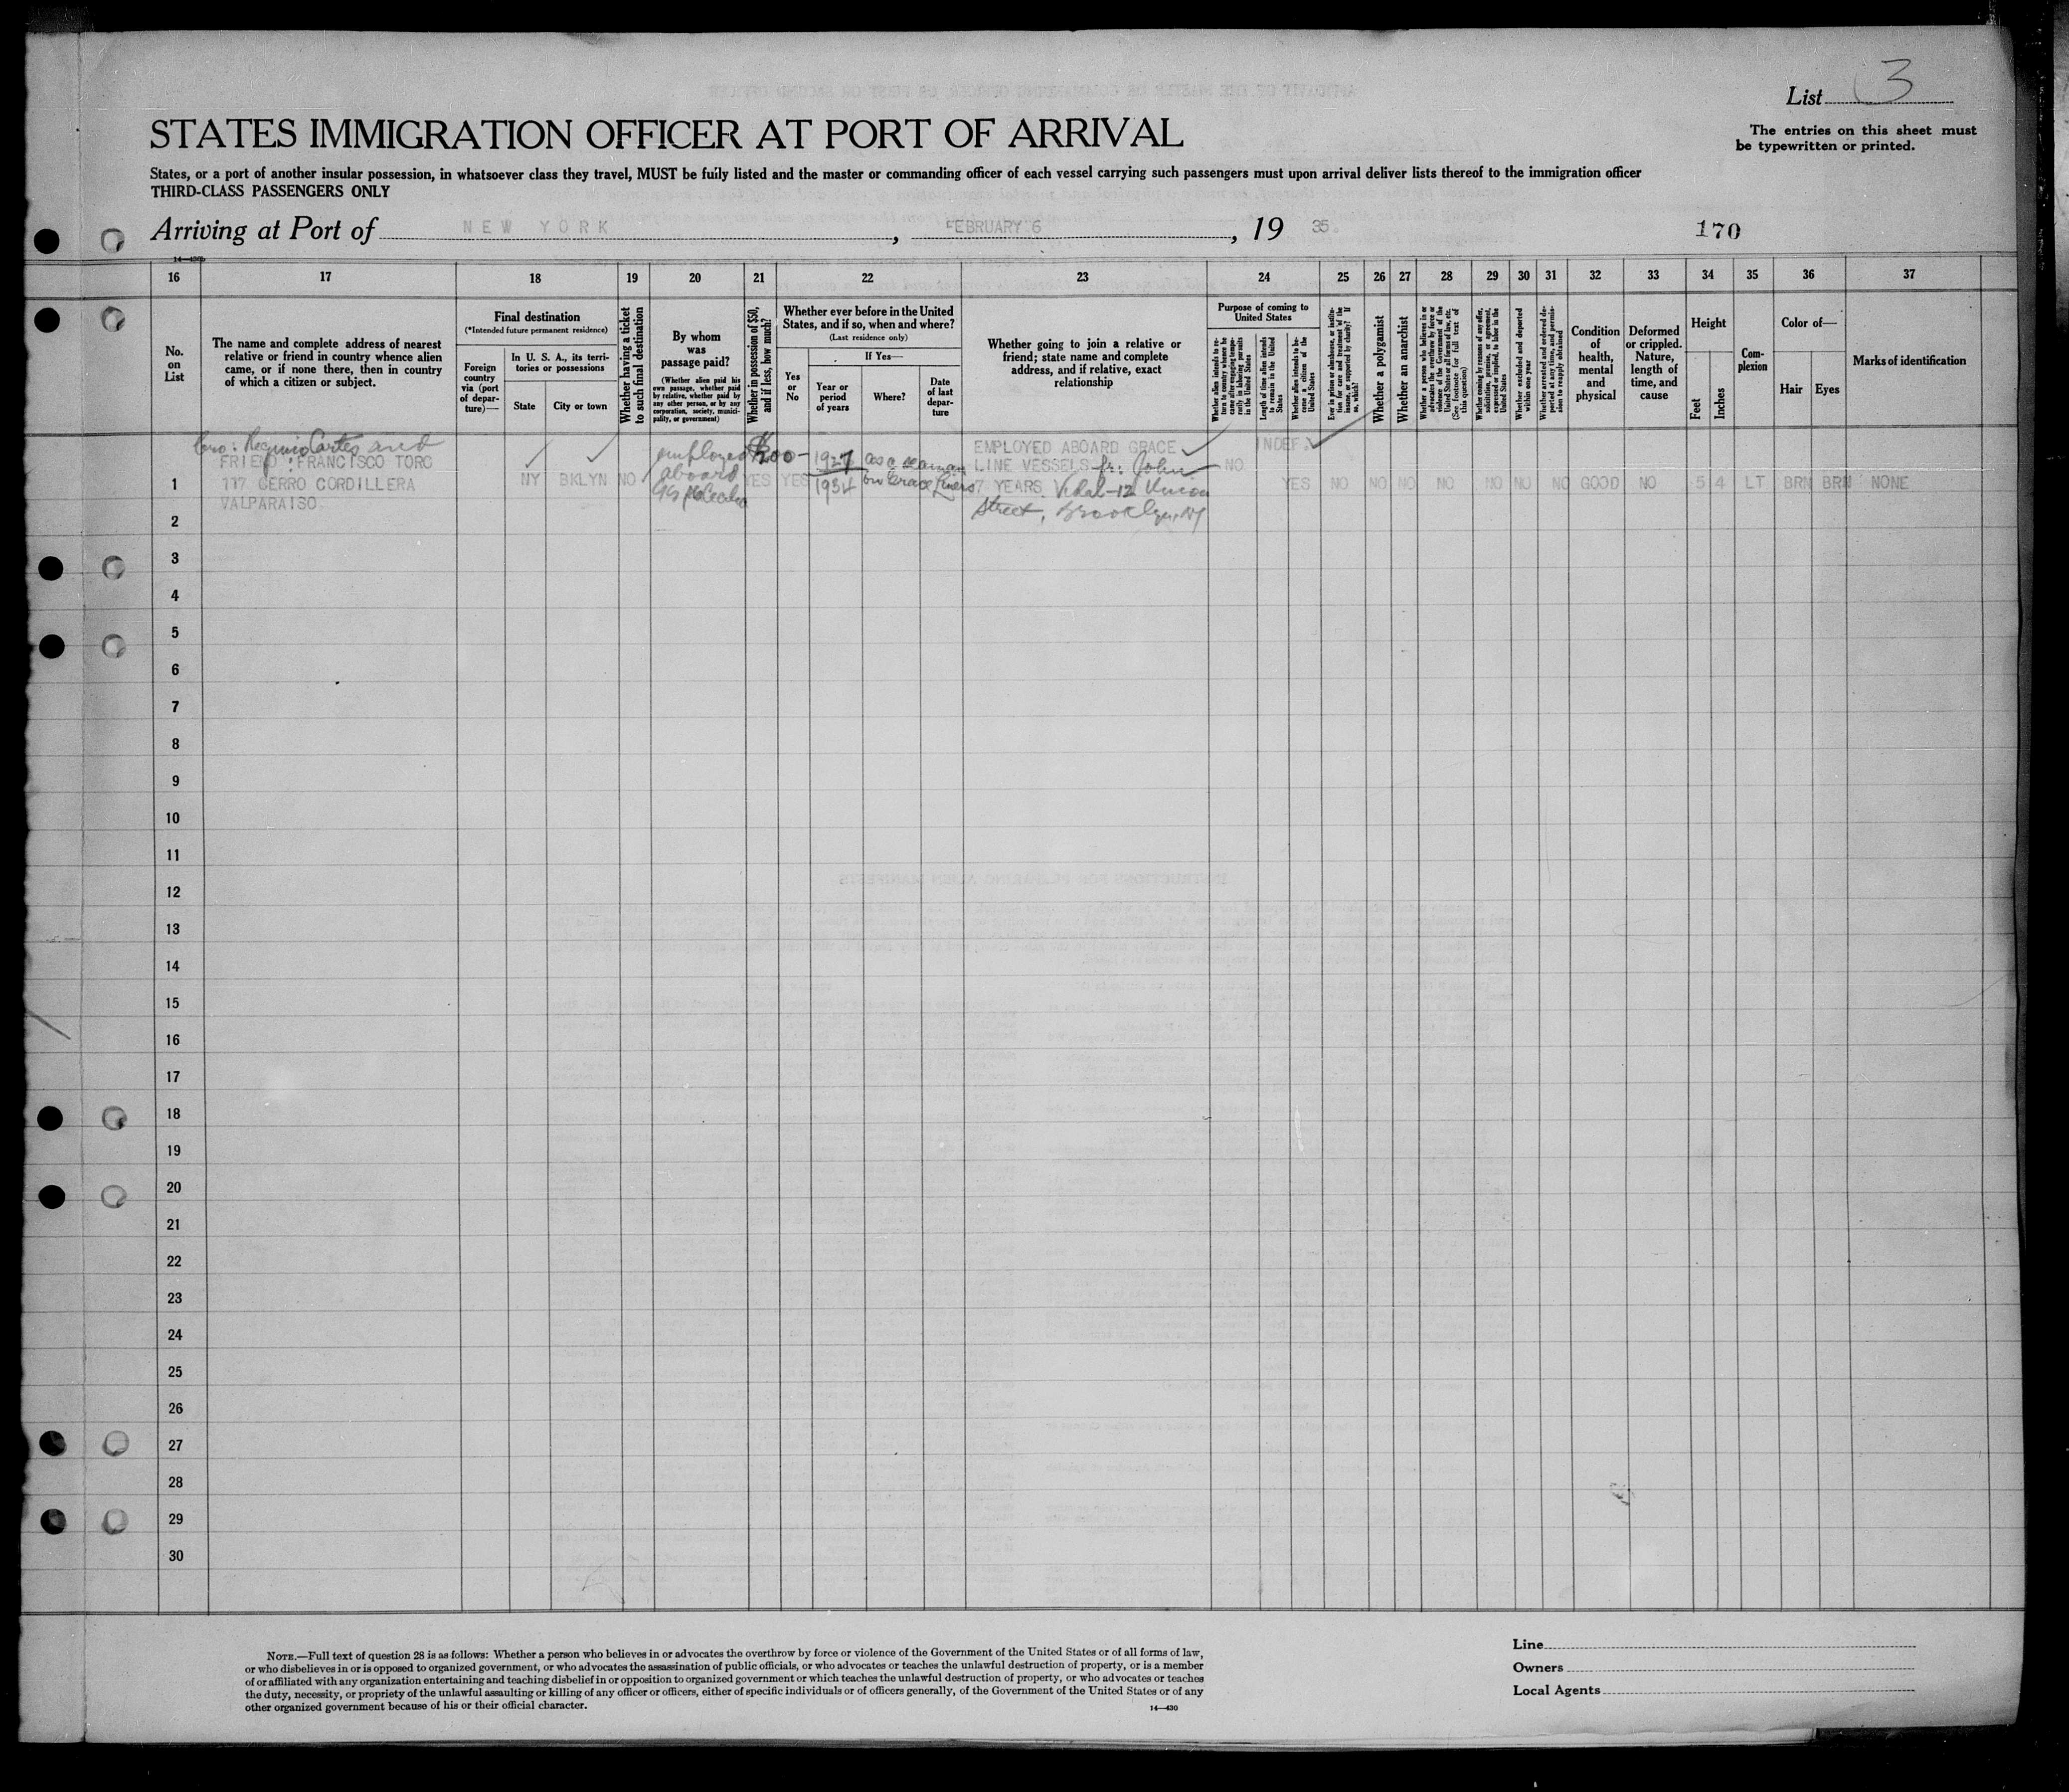 List 3
The entries on this sheet must
be typewritten or printed.
STATES IMMIGRATION OFFICER AT PORT OF ARRIVAL
States, or a port of another insular possession, in whatsoever class they travel, MUST be fully listed and the master or commanding officer of each vessel carrying such passengers must upon arrival deliver lists thereof to the immigration officer
THIRD-CLASS PASSENGERS ONLY
Arriving at Port of NEW YORK, FEBRUARY 6, 19 35.
170
16 17 18 19 20 21 22 23 24 25 26 27 28 29 30 31 32 33 34 35 36 37
No.
on
List
The name and complete address of nearest
relative or friend in country whence alien
came, or if none there, then in country
of which a citizen or subject.
Final destination
(*Intended future permanent residence)
Foreign
country
via (port
of depar-
ture)—
In U. S. A., its terri-
tories or possessions
State
City or town
Whether having a ticket
to such final destination
By whom
was
passage paid?
(Whether alien paid his
own passage, whether paid
by relative, whether paid by
any other person, or by any
corporation, society, munici-
pality, or government)
Whether in possession of $50,
and if less, how much?
Whether ever before in the United
States, and if so, when and where?
(Last residence only)
Yes
or
No
If Yes—
Year or
period
of years
Where?
Date
of last
depar-
ture
Whether going to join a relative or
friend; state name and complete
address, and if relative, exact
relationship
Purpose of coming to
United States
Whether alien intends to re-
turn to country whence he
came after engaging tempo-
rarily in laboring pursuits
in the United States
Length of time alien intends
to remain in the United
States
Whether alien intends to be-
come a citizen of the
United States
Ever in prison or almshouse, or institu-
tion for care and treatment of the
insane, or supported by charity? If
so, which?
Whether a polygamist
Whether an anarchist
Whether a person who believes in or
advocates the overthrow by force or
violence of the Government of the
United States or all forms of law, etc.
(See footnote for full text of
this question)
Whether coming by reasons of any offer,
solicitation, promise, or agreement,
expressed or implied, to labor in the
United States
Whether excluded and deported
within one year
Whether arrested and ordered de-
ported at any time, and permis-
sion to reapply obtained
Condition
of
health,
mental
and
physical
Deformed
or crippled.
Nature,
length of
time, and
cause
Height
Feet
Inches
Com-
plexion
Color of—
Hair
Eyes
Marks of identification
Cartes and
FRIEND: FRANCISCO TORO
117 CERRO CORDILLERA
VALPARAISO.
NY
BKLYN
NO
employed
aboard
$200-
YES
YES
1927
1934
as a seaman
on Grace Liners
EMPLOYED ABOARD GRACE
LINE VESSELS fr: John
7 YEARS. Vidal-12 Union
Street, Brooklyn, NY
NO
INDEF.
YES
NO NO NO NO NO NO NO GOOD NO 5 4 LT BRN BRN NONE
1
2
3
4
5
6
7
8
9
10
11
12
13
14
15
16
17
18
19
20
21
22
23
24
25
26
27
28
29
30
NOTE.—Full text of question 28 is as follows: Whether a person who believes in or advocates the overthrow by force or violence of the Government of the United States or of all forms of law,
or who disbelieves in or is opposed to organized government, or who advocates the assassination of public officials, or who advocates or teaches the unlawful destruction of property, or is a member
of or affiliated with any organization entertaining and teaching disbelief in or opposition to organized government or which teaches the unlawful destruction of property, or who advocates or teaches
the duty, necessity, or propriety of the unlawful assaulting or killing of any officer or officers, either of specific individuals or of officers generally, of the Government of the United States or of any
other organized government because of his or their official character.
14—430
Line
Owners
Local Agents